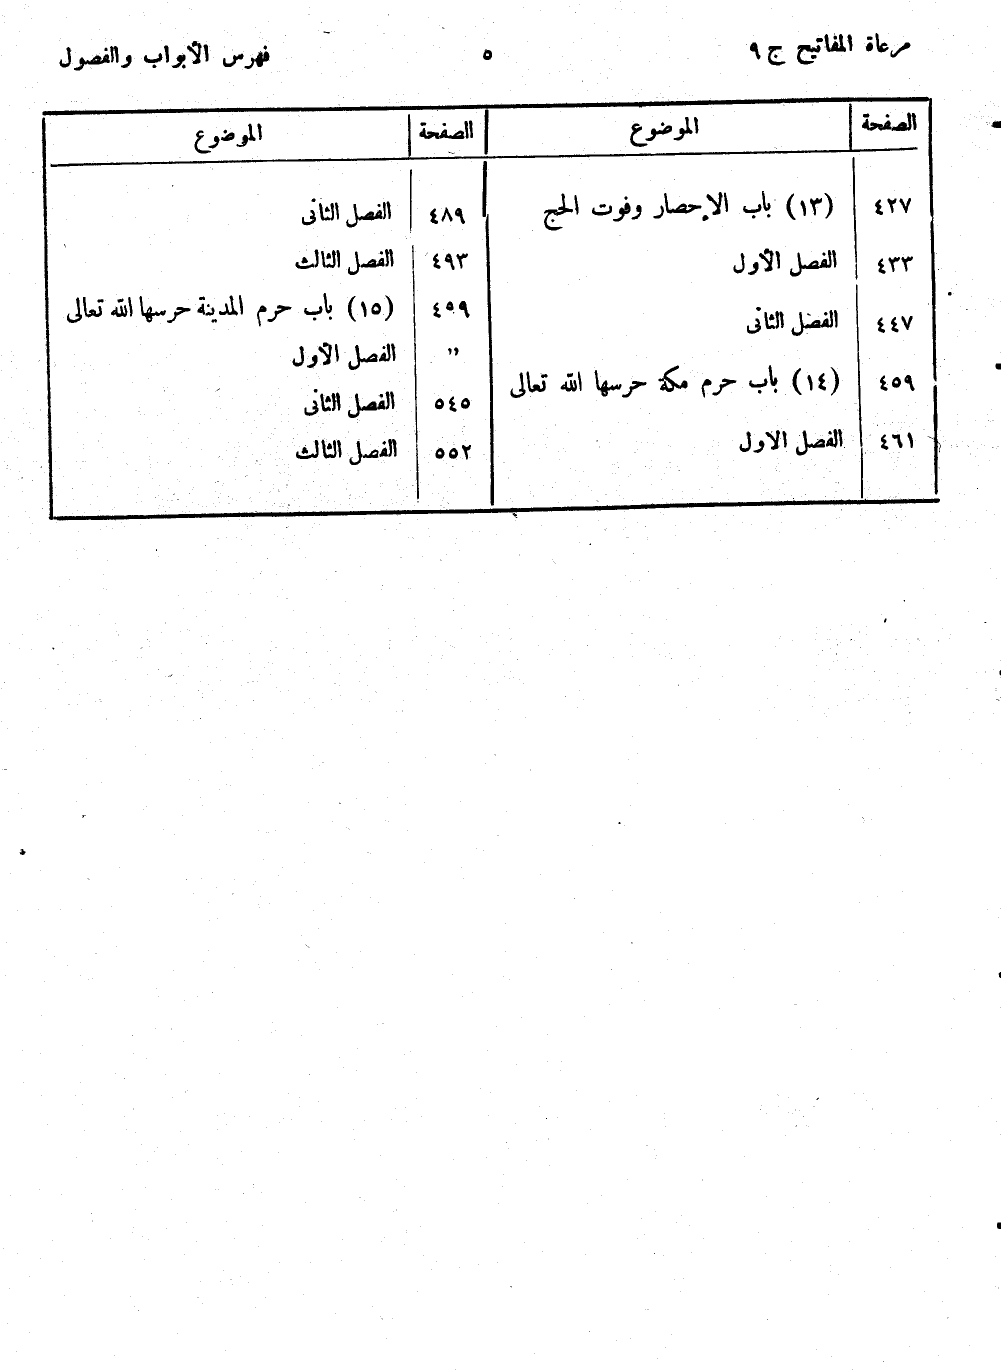 مرعاة المفاتيح ج ٩
٥
فهرس الأبواب والفصول
الصفحة الموضوع
٤٢٧ (١٣) باب الإحصار وفوت الحج
٤٣٣ الفصل الأول
٤٤٧ الفصل الثانى
٤٥٩ (١٤) باب حرم مكة حرسها الله تعالى
٤٦١ الفصل الاول
الصفحة الموضوع
٤٨٩ الفصل الثانى
٤٩٣ الفصل الثالث
٤٩٩ (١٥) باب حرم المدينة حرسها الله تعالى
,, الفصل الأول
٥٤٥ الفصل الثانى
٥٥٢ الفصل الثالث